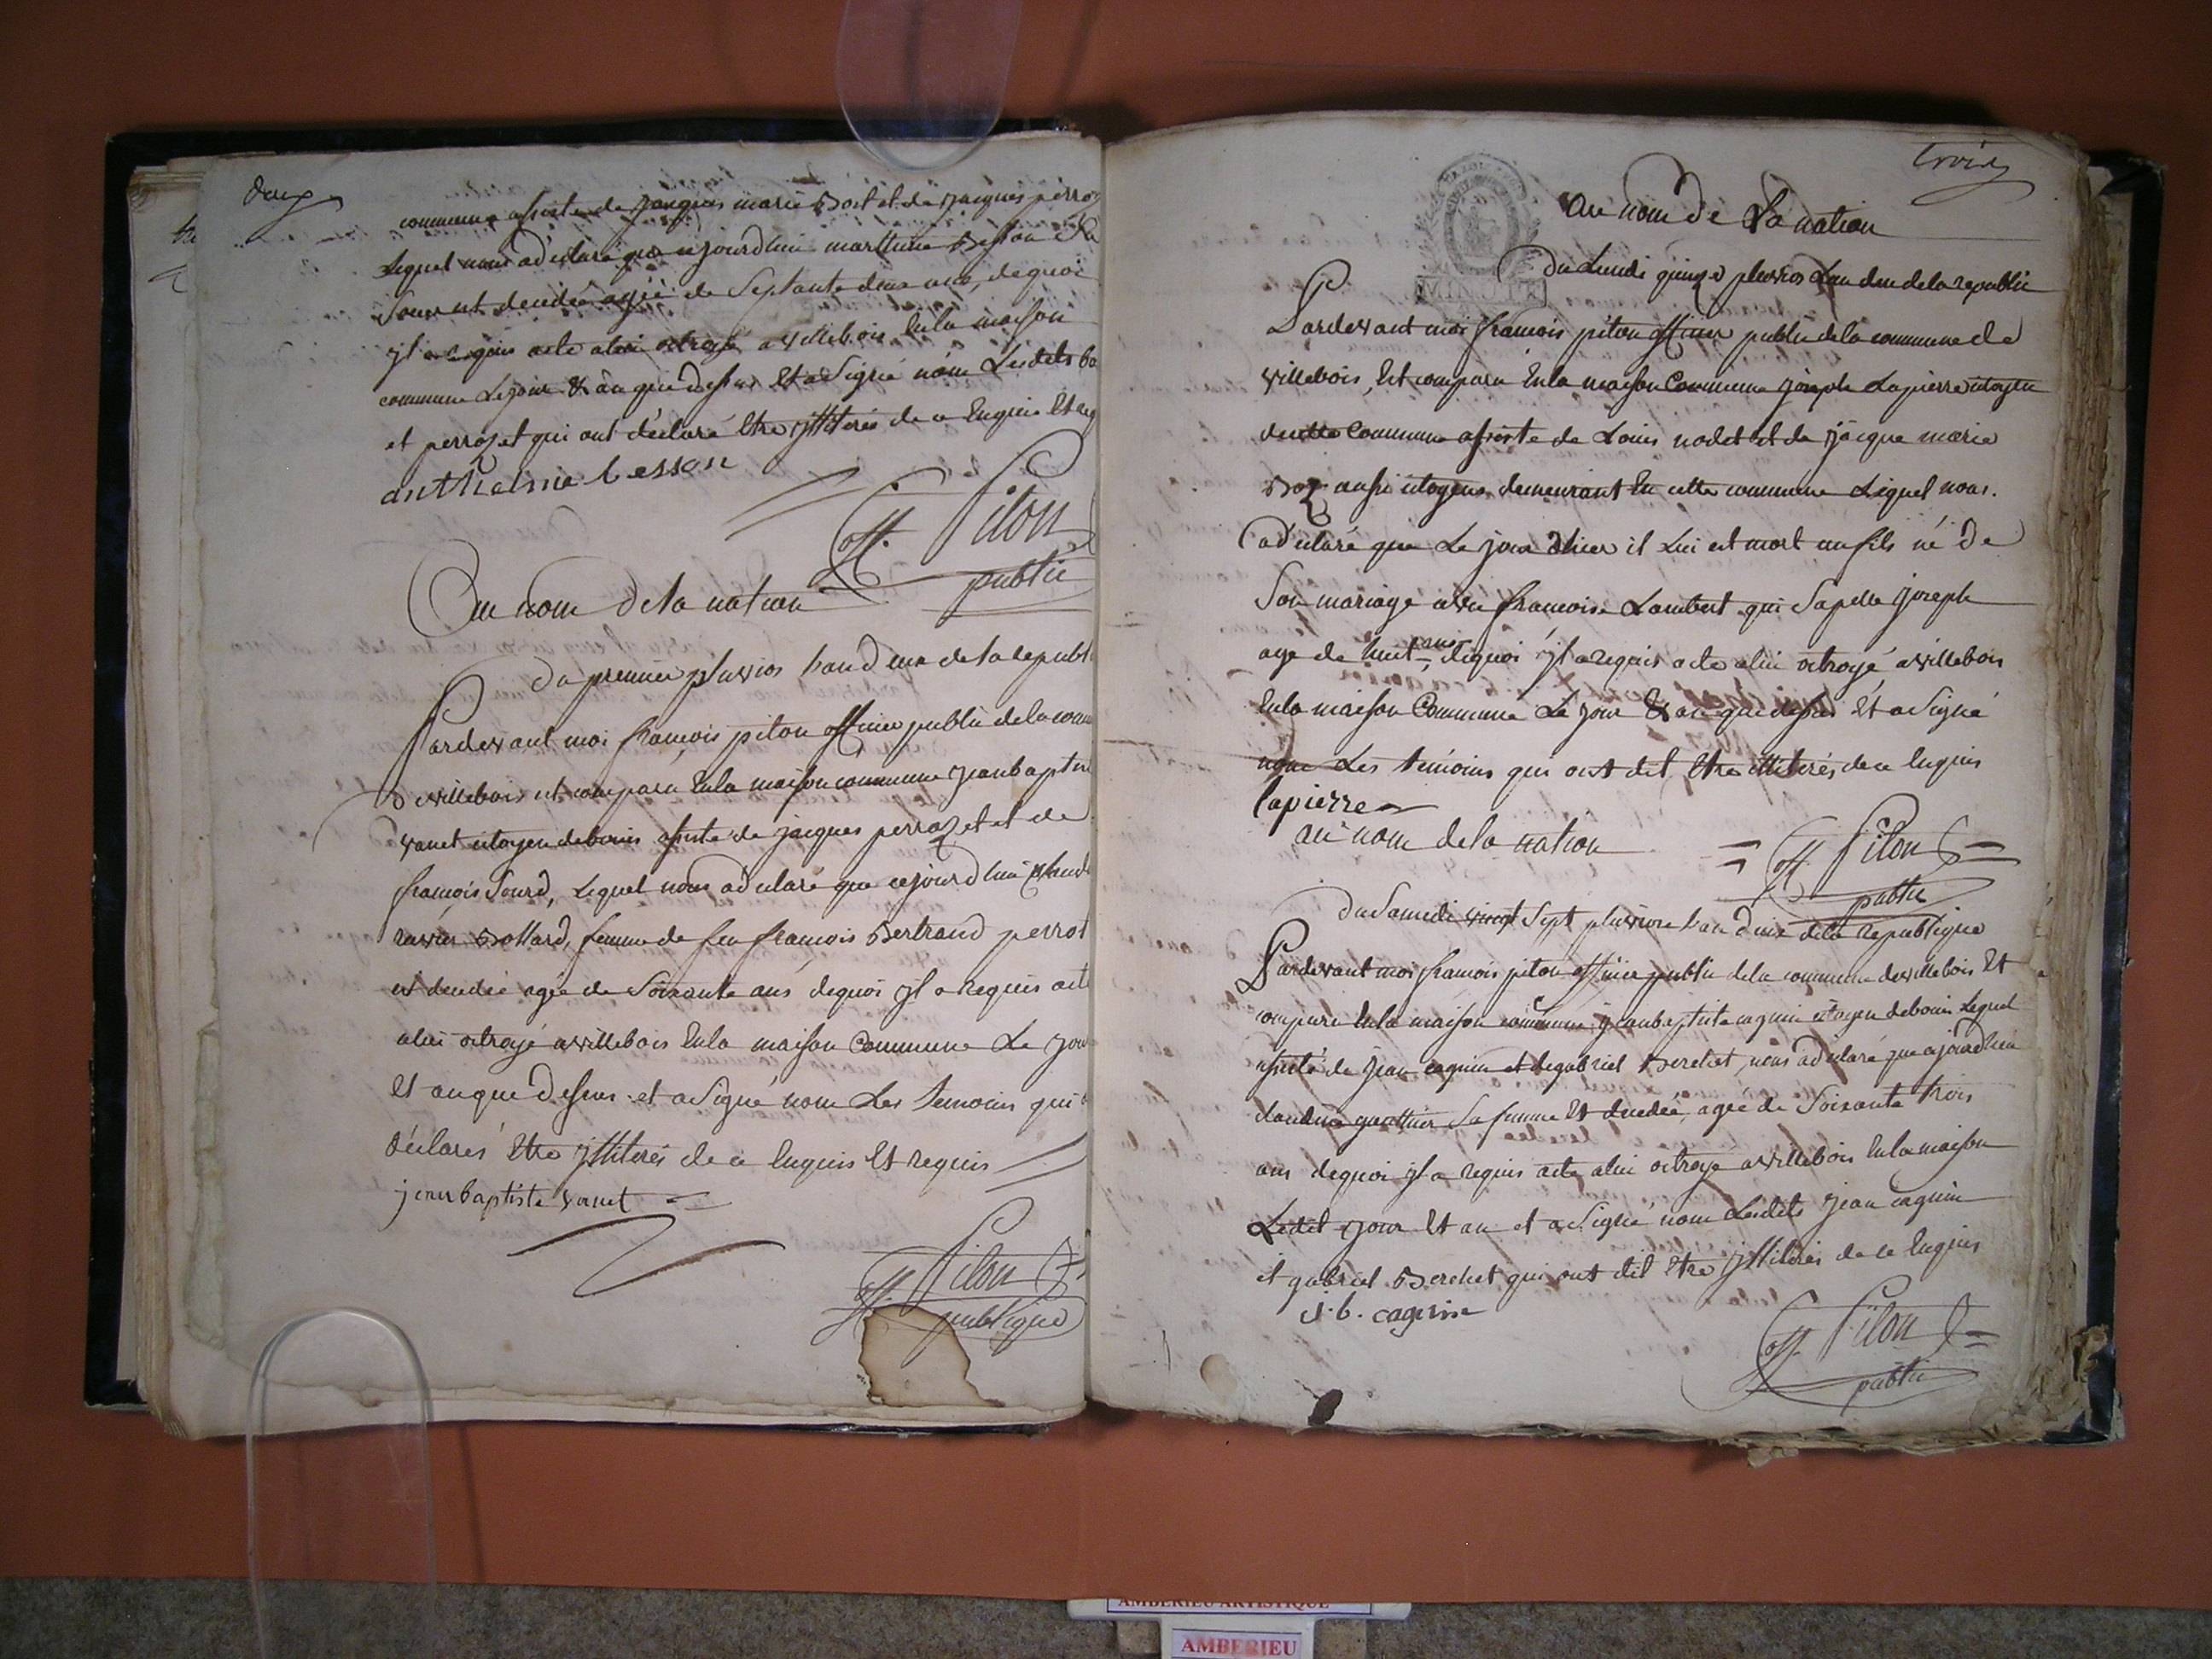 deux
commune assisté de jacques marie Bost et de jacques perroz
Lequel nous a declaré que cejourdhui marthine Besson sa
Soeur est decedée agée de Septante deux ans, de quoi
jl a requis acte a lui octroyé a villebois En la maison
commune Le jour & an que dessus Et a Signé non Lesdits bo
et perrozet qui ont déclaré Etre jlliterés de ce Enquis Et req
anthelme besson
off. Piton
public
Au nom de la nation
Du premier pluvios Lan deux de la republi
Pardevant moi francois piton officier public de la com
de villebois est comparu En la maison commune jean baptis
vanet citoyen de bouis assisté de jacques perrozet et de
francois Sourd, Lequel nous a declaré que cejourdhui
Bollard, femme de feu francois Bertrand perrot
est decedée agée de Soixante ans dequoi jl a requis acte
a lui octroyé a villebois En la maison Commune Le jour
Et an que dessus et a Signé non Les temoins qui
déclarés Etre jlliterés de ce Enquis Et requis
jean baptiste vanet
off. Piton
publique
troix
MINUTE
Au nom de La nation
Du Lundi quinze pluvios Lan deux de la republic
Pardevant moi francois piton officier public de la commune de
villebois, Est comparu En la maison Commune joseph Lapierre citoyen
de cette Commune assisté de Louis nodet et de jacque marie
Boz aussi citoyens demeurant En cette commune Lequel nous
a declaré que Le jour dhier il Lui est mort un fils né de
Son mariage avec francoise Lambert qui Sapelle joseph
age de huit ans, dequoi jl a requis acte a lui octroyé a villebois
En la maison Commune Le jour & an que dessus Et a Signé
non Les témoins qui ont dit Etre illiterés de ce Enquis
lapierre
au nom de la nation
off. Piton
public
Du Samedi vingt Sept pluviose Lan deux de la republique
Pardevant moi francois piton officier public de la commune de villebois Est
comparu En la maison commune jean baptiste caguin citoyen de bouis Lequel
assisté de jean caguin et de gabriel Berchet, nous a declaré que cejourdhui
claudine gauthier Sa femme Est decedée, agée de Soixante trois
ans dequoi jl a requis acte a lui octroyé a villebois En la maison
Ledit jour Et an et a Signé non Lesdits jean caguin
et gabriel Berchet qui ont dit Etre jlliterés de ce Enquis
j. b. caguin
off. Piton
public
AMBERIEU ARTISTIQUE
AMBERIEU